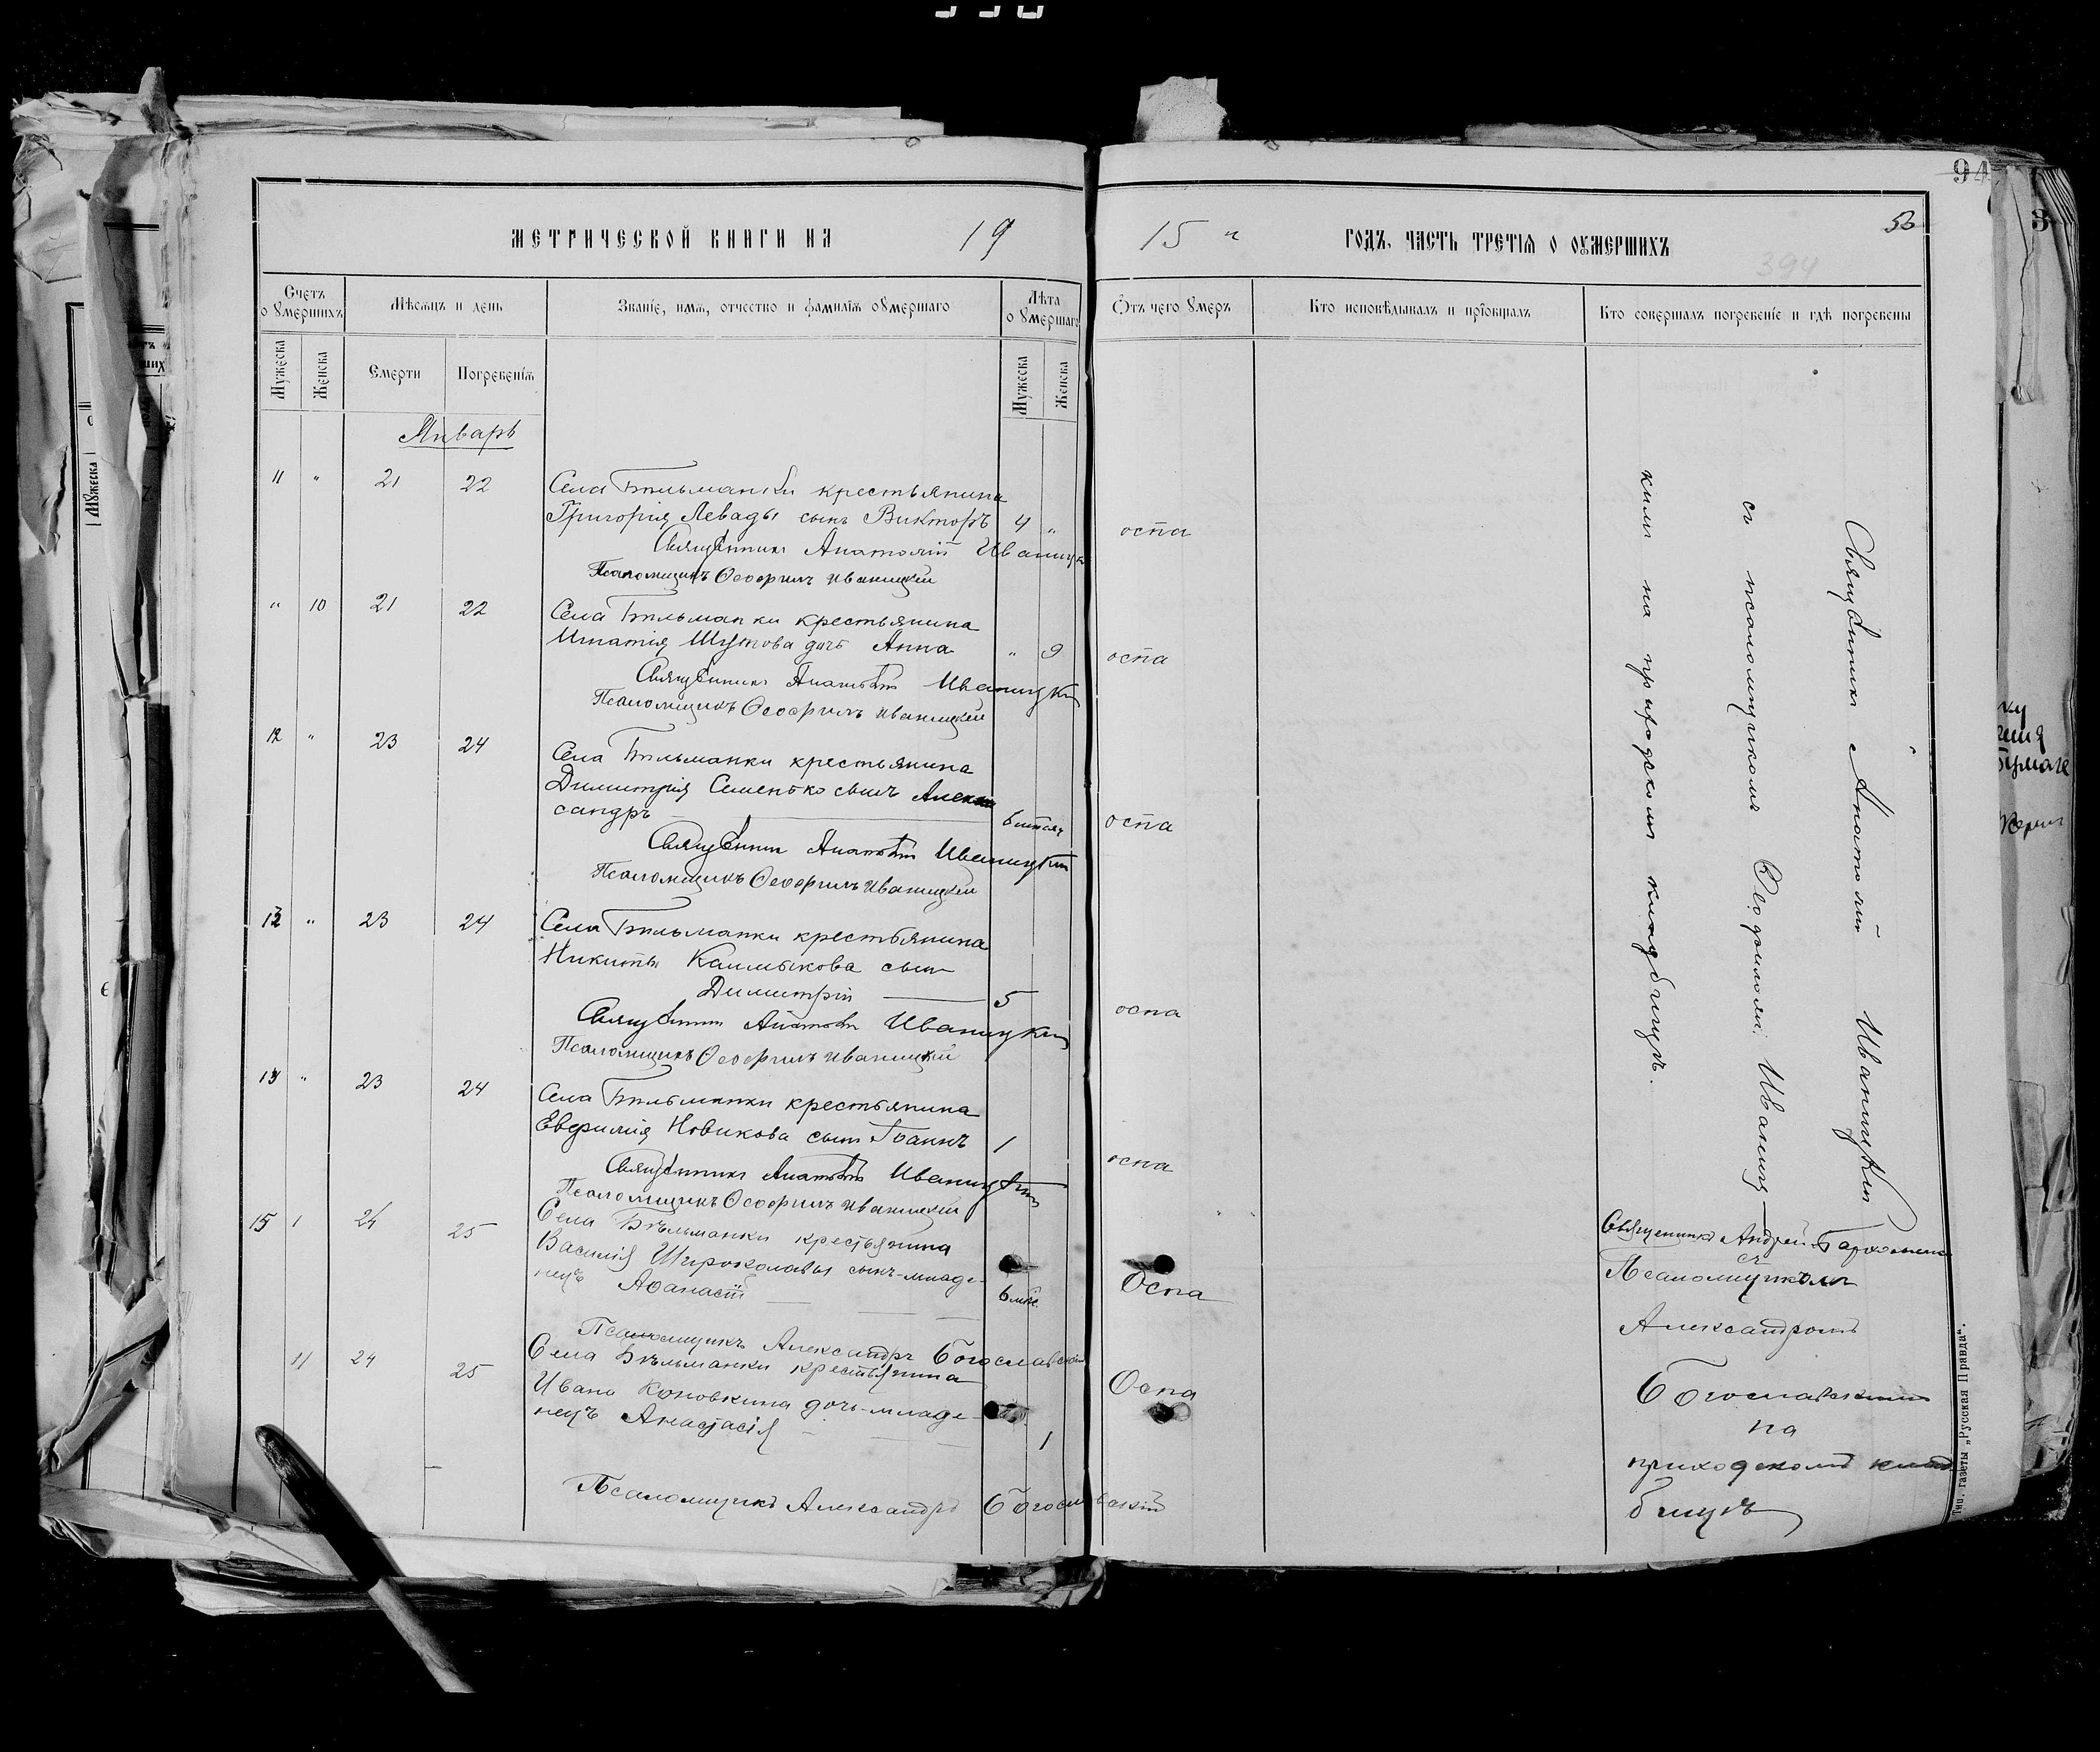 94
56
394
МЕТРИЧЕСКОЙ КНИГИ НА 1915 г ГОДЪ, ЧАСТЬ ТРЕТІЯ О ОУМЕРШИХЪ
Счетъ о умершихъ
Мѣсяцъ и день
Званіе, имя, отчество и фамилія оумершаго
Лѣта оумершаго
Отъ чего умеръ
Кто исповѣдывалъ и пріобщалъ
Кто совершалъ погребеніе и гдѣ погребены
Мужеска
Женска
Смерти
Погребенія
Мужеска
Женска
Январь
11 " 21 22 Села Бѣльманки крестьянина
Григорія Левады сынъ Викторъ 4 " оспа
Священникъ Анатолій Иваницкій
Псаломщикъ Ѳеофилъ Иваницкій
" 10 21 22 Села Бѣльманки крестьянина
Игнатія Шутова дочь Анна " 9 оспа
Священникъ Анатолій Иваницкій
Псаломщикъ Ѳеофилъ Иваницкій
12 " 23 24 Села Бѣльманки крестьянина
Димитрія Семенько сынъ Алек
сандръ 6 оспа
Священникъ Анатолій Иваницкій
Псаломщикъ Ѳеофилъ Иваницкій
13 " 23 24 Села Бѣльманки крестьянина
Никиты Калмыкова сынъ
Димитрій 5 оспа
Священникъ Анатолій Иваницкій
Псаломщикъ Ѳеофилъ Иваницкій
14 " 23 24 Села Бѣльманки крестьянина
Евфимія Новикова сынъ Іоаннъ 1 оспа
Священникъ Анатолій Иваницкій
Псаломщикъ Ѳеофилъ Иваницкій
15 24 25 Села Бѣльманки крестьянина
Василія Широколавы сынъ-младе-
нецъ Аѳанасій 6 мѣс. Оспа
Псаломщикъ Александръ Богославскій
11 24 25 Села Бѣльманки крестьянина
Ивана Коновкина дочь-младе-
нецъ Анастасія 1 Оспа
Псаломщикъ Александръ Богославскій
Священникъ Анатолій Иваницкій
съ псаломщикомъ Ѳеофиломъ Иваниц
кимъ на приходскомъ кладбищѣ.
Священникъ Андрей
съ
Псаломщикомъ
Александромъ
Богославскимъ
на
приходскомъ клад
бищѣ
Тип. газеты „Русская Правда“.